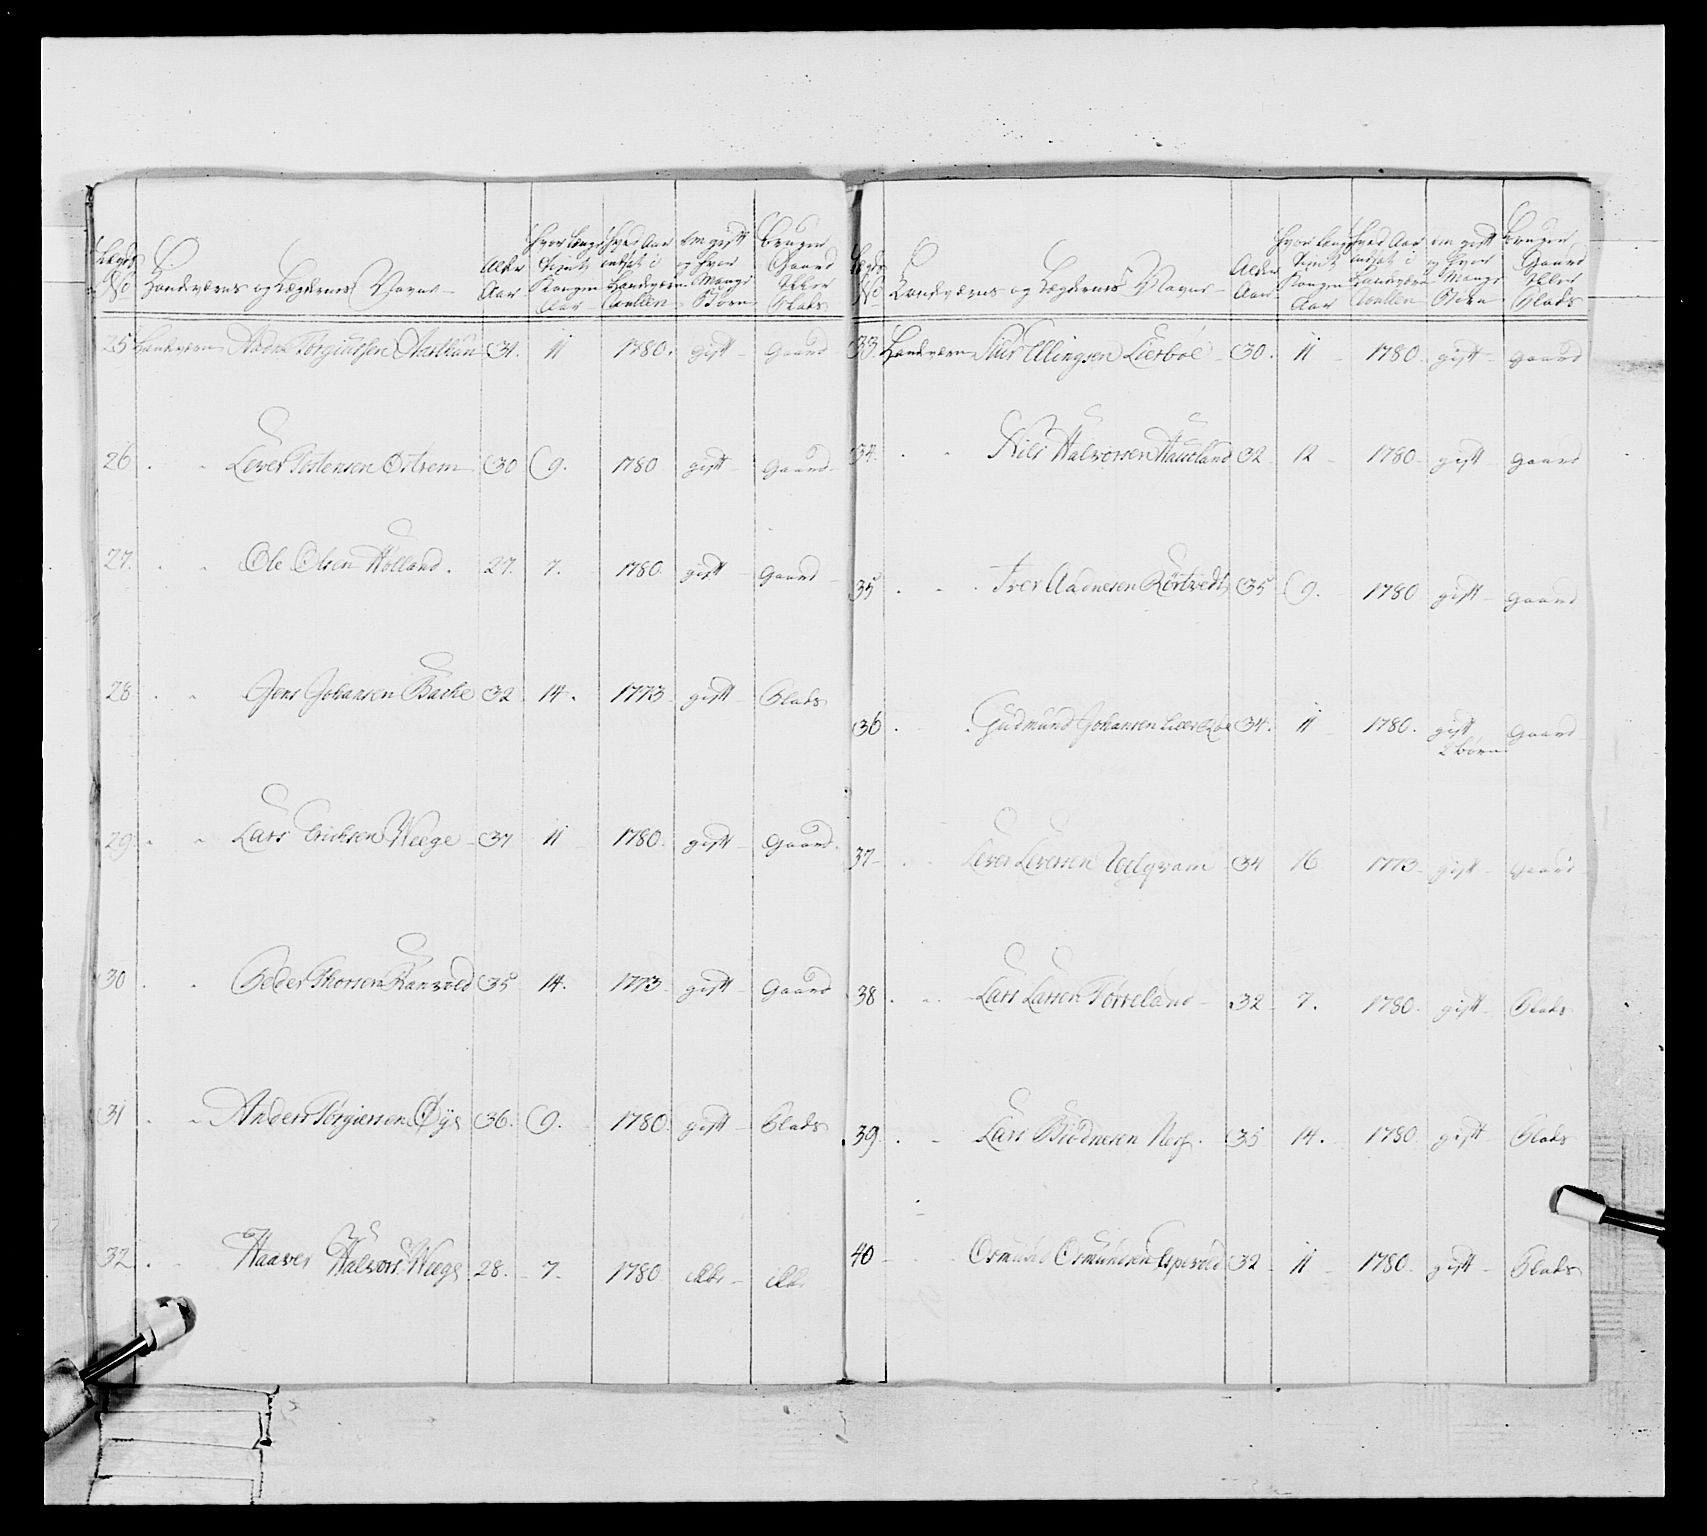 Lægds No Landværns og Lægdernes Navne Alder Aar Hvor længe Tient Kongen Aar Hvad Aar indsat i Landværn Roullen om gift og hvor Mange Børn bruger Gaard Eller Plads
25 Landværn Torgiussen 31. 11 1780. gift Gaard
26 Lever Tostensen Østrem 30 9. 1780 gift Gaard
27. Ole Olsen Hølland. 27. 7. 1780. gift Gaard
28 Jens Johansen Bache 32 14. 1773 gift Plads
29 Lars Erichsen Weege 37 11 1780. gift Gaard.
30 Peder Thorsen Ranvold 35 14. 1773 gift Gaard
31 Anders Torgiersen Øye 36. 9. 1780. gift Plads
32 Haaver Halvors. Weege 28. 7. 1780. ikke ikke
Lægds No Landværns og Lægdernes Navne Alder Aar Hvor længe Tient Kongen Aar Hvad Aar indsat i Landværn Roullen om gift og hvor Mange Børn bruger Gaard Eller Plads
33. Landværn Siur Ellingsen Lierboe 30. 11 1780. gift Gaard
34. Nils Halvorsen Haueland 32 12 1780. gift Gaard
35 Iver Aadnesen Rørtvedt 35 9. 1780 gift Gaard
36 Gudmund Johansen 34. 11 1780. gift Gaard
2 børn
37 Lever Leversen Uelgvam 34 16 1773. gift Gaard
38 Lars Larsen Torreland 32 7. 1780. gift Plads
39. Lars Biødnesen Nese. 35 14. 1780. gift Plads
40 Osmund Osmundsen Espevold 32 11 1780. gift Plads